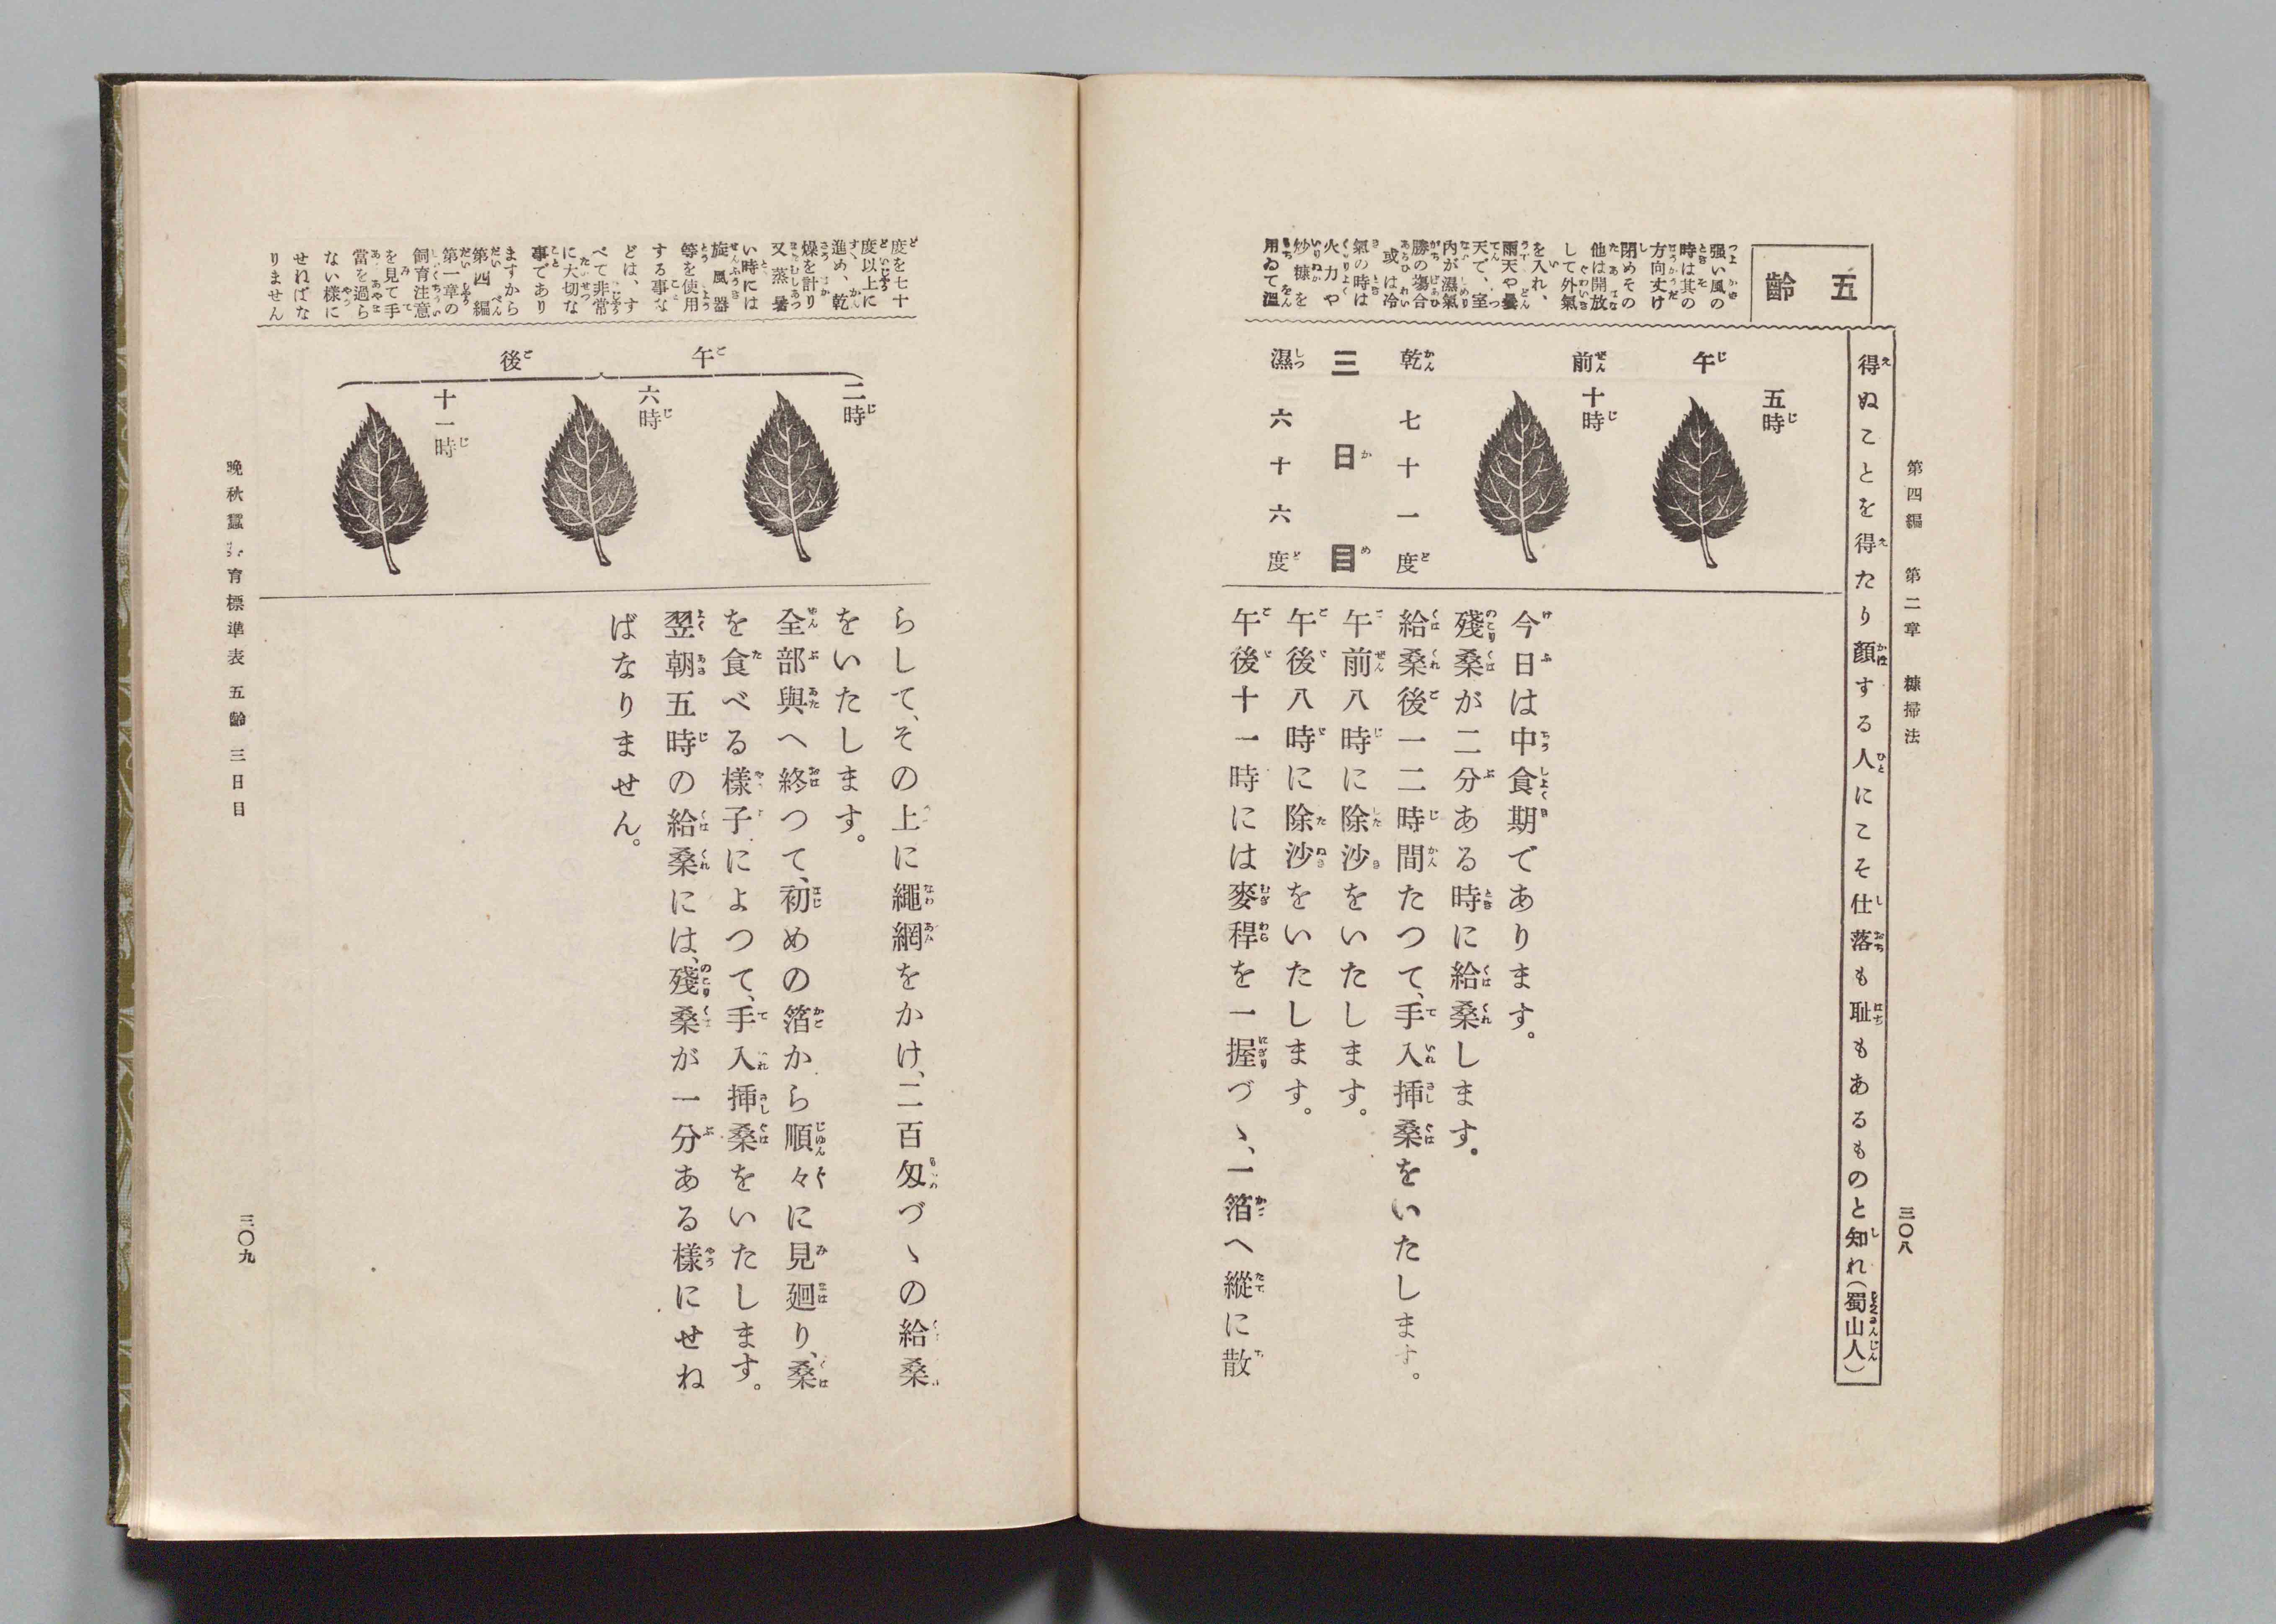 第四編　第二章　糠掃法
三〇八
得ぬことを得たり顏する人にこそ仕落も耻もあるものと知れ（蜀山人）
五齡
强い風の
時は其の
方向丈け
閉めその
他は開放
して外氣
を入れ、
雨天や曇
天で、室
内が濕氣
勝の塲合
或は冷
氣の時は
火力や
炒糠を
用ゐて溫
午前
五時
十時
乾　七十一度
三日目
濕　六十六度
今日は中食期であります。
殘桑が二分ある時に給桑します。
給桑後一二時間たつて、手入揷桑をいたします。
午前八時に除沙をいたします。
午後八時に除沙をいたします。
午後十一時には麥稈を一握づゝ、一箔へ縱に散
度を七十
度以上に
進め、乾
燥を計り
又蒸暑
い時には
旋風器
等を使用
する事な
どは、す
べて非常
に大切な
事であり
ますから
第四編
第一章の
飼育注意
を見て手
當を過ら
ない樣に
せねばな
りません
午後
二時
六時
十一時
らして、その上に繩網をかけ、二百匁づゝの給桑
をいたします。
全部與へ終つて、初めの箔から順々に見廻り、桑
を食べる樣子によつて、手入揷桑をいたします。
翌朝五時の給桑には、殘桑が一分ある樣にせね
ばなりません。
晩秋蠶育標準表　五齡　三日目
三〇九